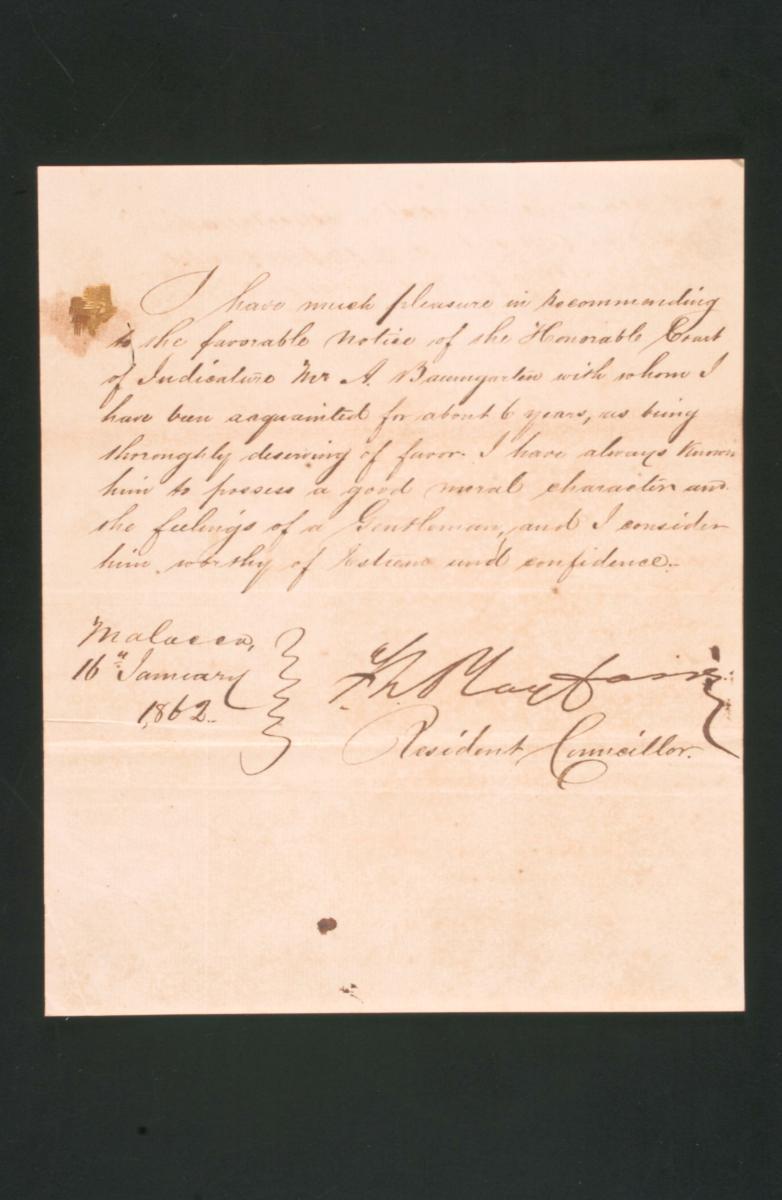 I have much pleasure in recommending
to the favorable notice of the Honorable Court
of Judicature Mr A. Baumgarten with whom I
have been acquainted for about 6 years, as being
thoroughly deserving of favor. I have always known
him to possess a good moral character and
the feelings of a Gentleman, and I consider
him worthy of Esteem and confidence.
Malacca,
16th January
1862.
Resident Councillor.